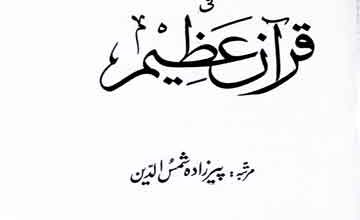 قرآن عظیم
مرتبہ: پیرزادہ شمس الدین